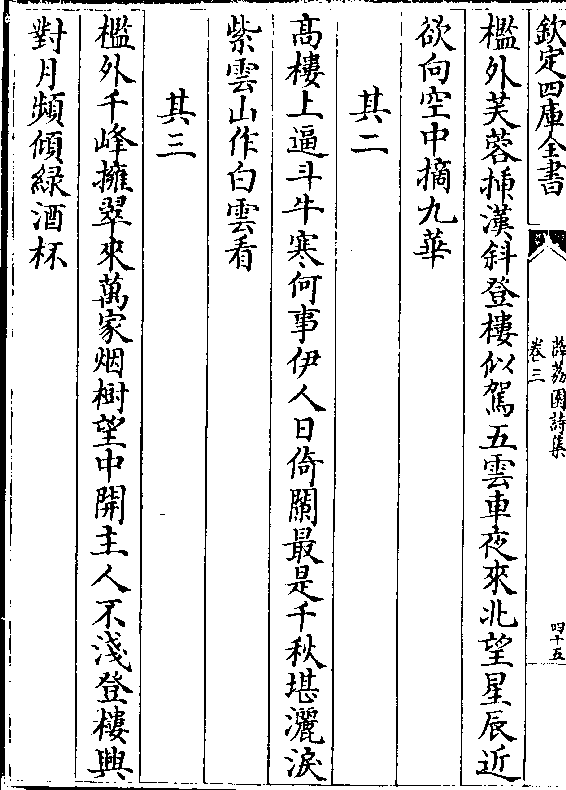 欽定四庫全書
薜荔園詩集
卷三
四十五
檻外芙蓉揷漢斜登樓似駕五雲車夜來北望星辰近
欲向空中摘九華
其二
髙樓上逼斗牛寒何事伊人日倚闌最是千秋堪灑淚
紫雲山作白雲看
其三
檻外千峰擁翠來萬家烟樹望中開主人不淺登樓興
對月頻傾緑酒杯